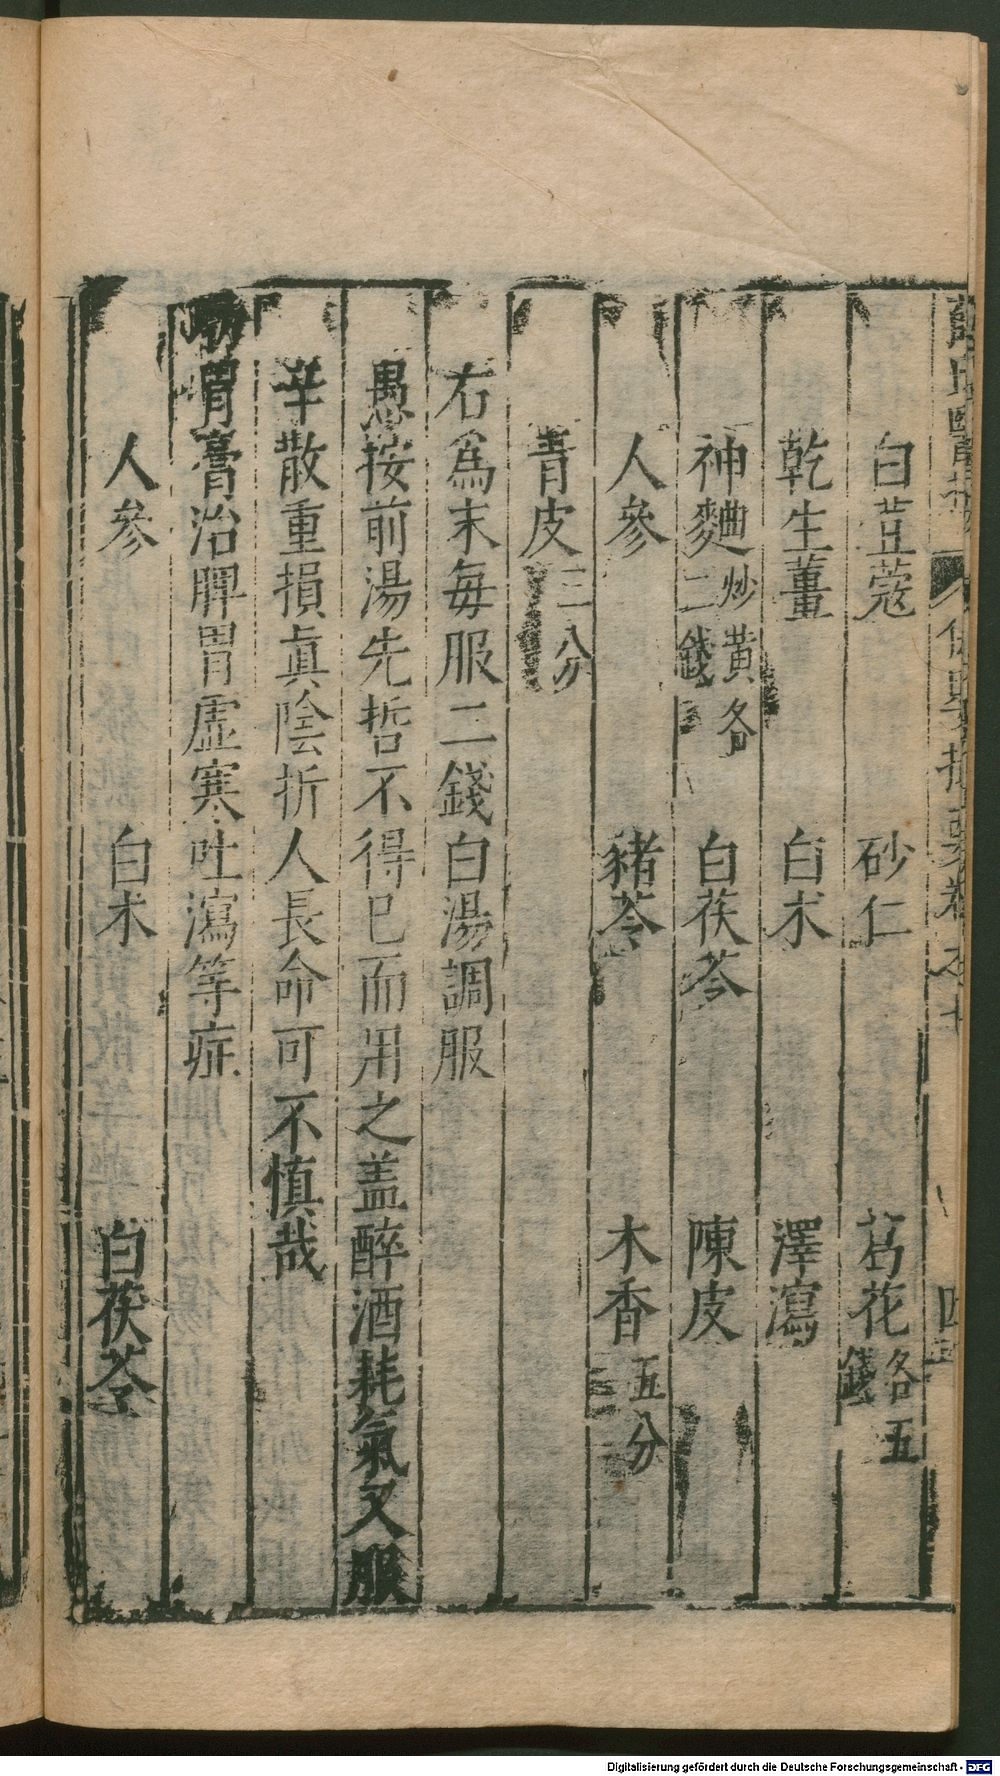 白荳蔻 砂仁 葛花各五錢
乾生薑 白朮 澤瀉
神麯炒黃各二錢 白茯苓 陳皮
人參 豬苓 木香五分
青皮三分
右爲末每服二錢白湯調服
愚按前湯先哲不得已而用之盖醉酒耗氣又服
辛散重損真陰折人長命可不慎哉
胃膏治脾胃虛寒吐瀉等症
人參 白朮 白茯苓
Digitalisierung gefördert durch die Deutsche Forschungsgemeinschaft - DFG